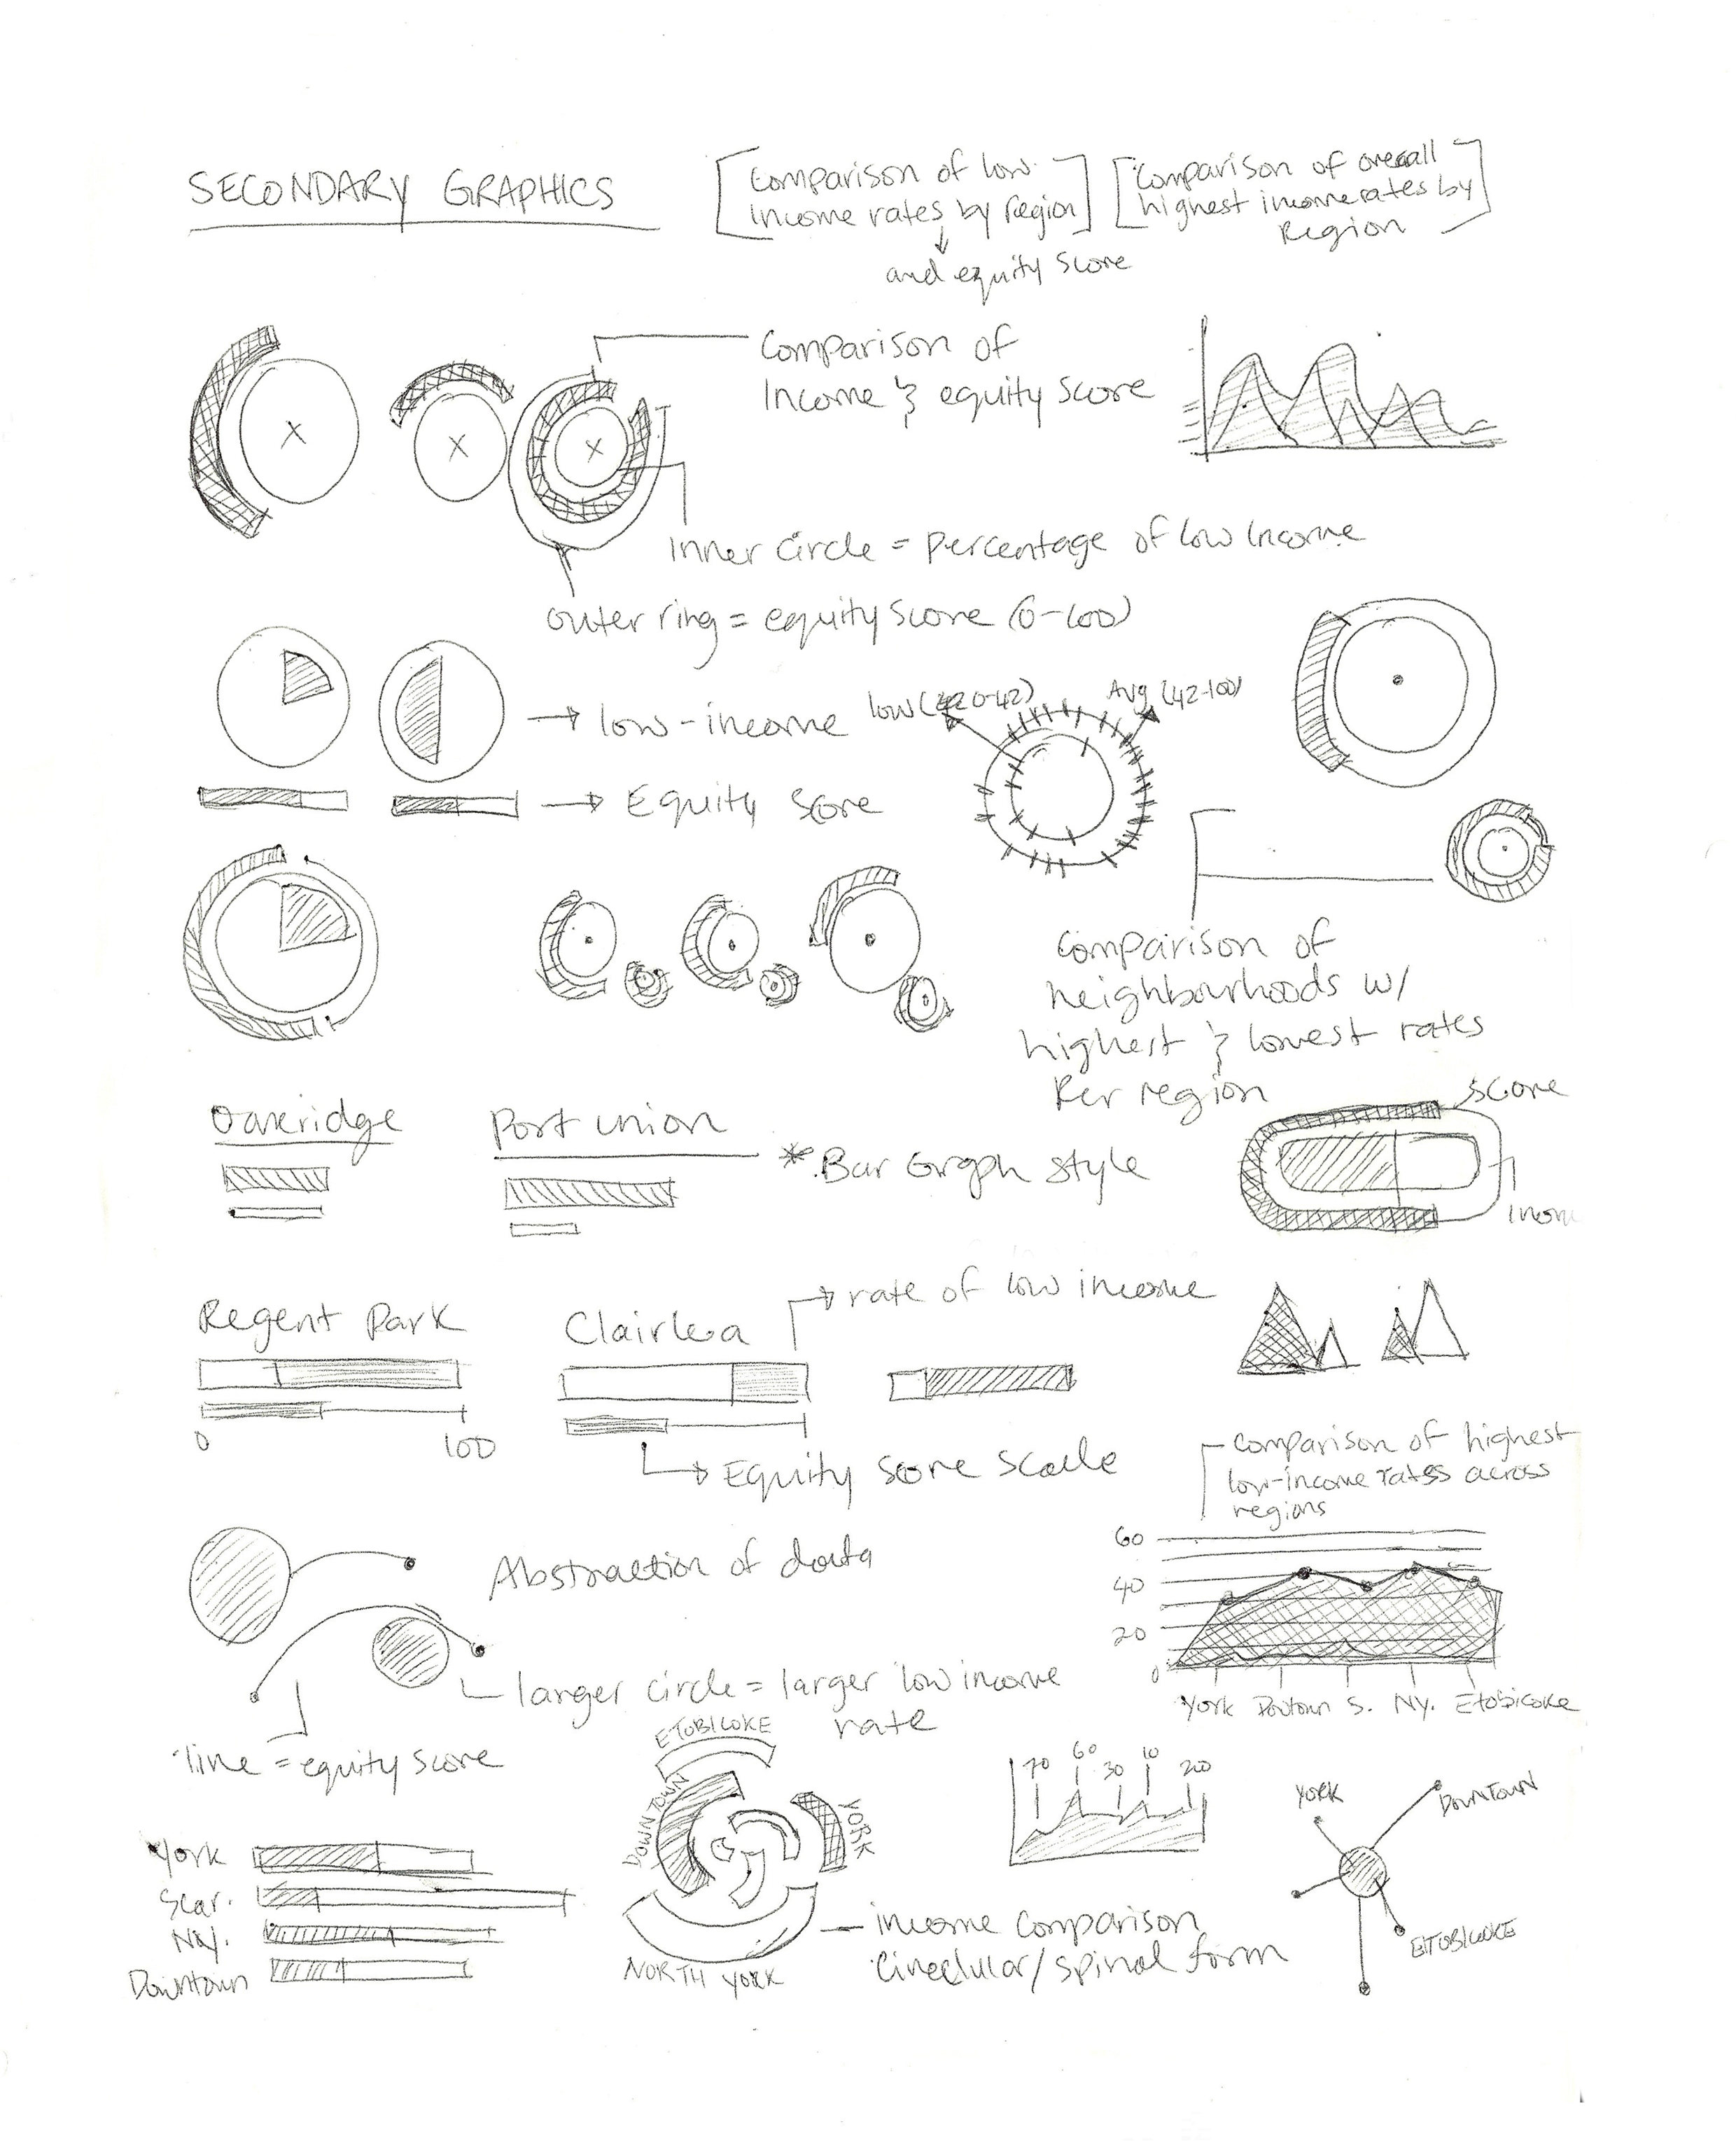 SECONDARY GRAPHICS
[Comparison of low
income rates by region]
and equity score
[Comparison of overall
highest income rates by
Region]
Comparison of
Income & equity score
inner circle = percentage of low income
outer ring = equity score (0-100)
→ low-income
low (0-42)
Avg (42-100)
→ Equity score
Comparison of
neighbourhoods w/
highest & lowest rates
Per region
Oakridge
Port union
* Bar Graph style
score
Regent Park
0
100
Clairlea
→ rate of low income
→ Equity score scale
comparison of highest
low-income rates across
regions
60
40
20
0
York Dowtown S. NY. Etobicoke
Abstraction of data
larger circle = larger low income
rate
line = equity score
ETOBICOKE
DOWNTOWN
YORK
NORTH YORK
income comparison
/spinal form
70 60 30 10 20
YORK
DOWNTOWN
ETOBICOKE
York
Scar.
NY.
Downtown